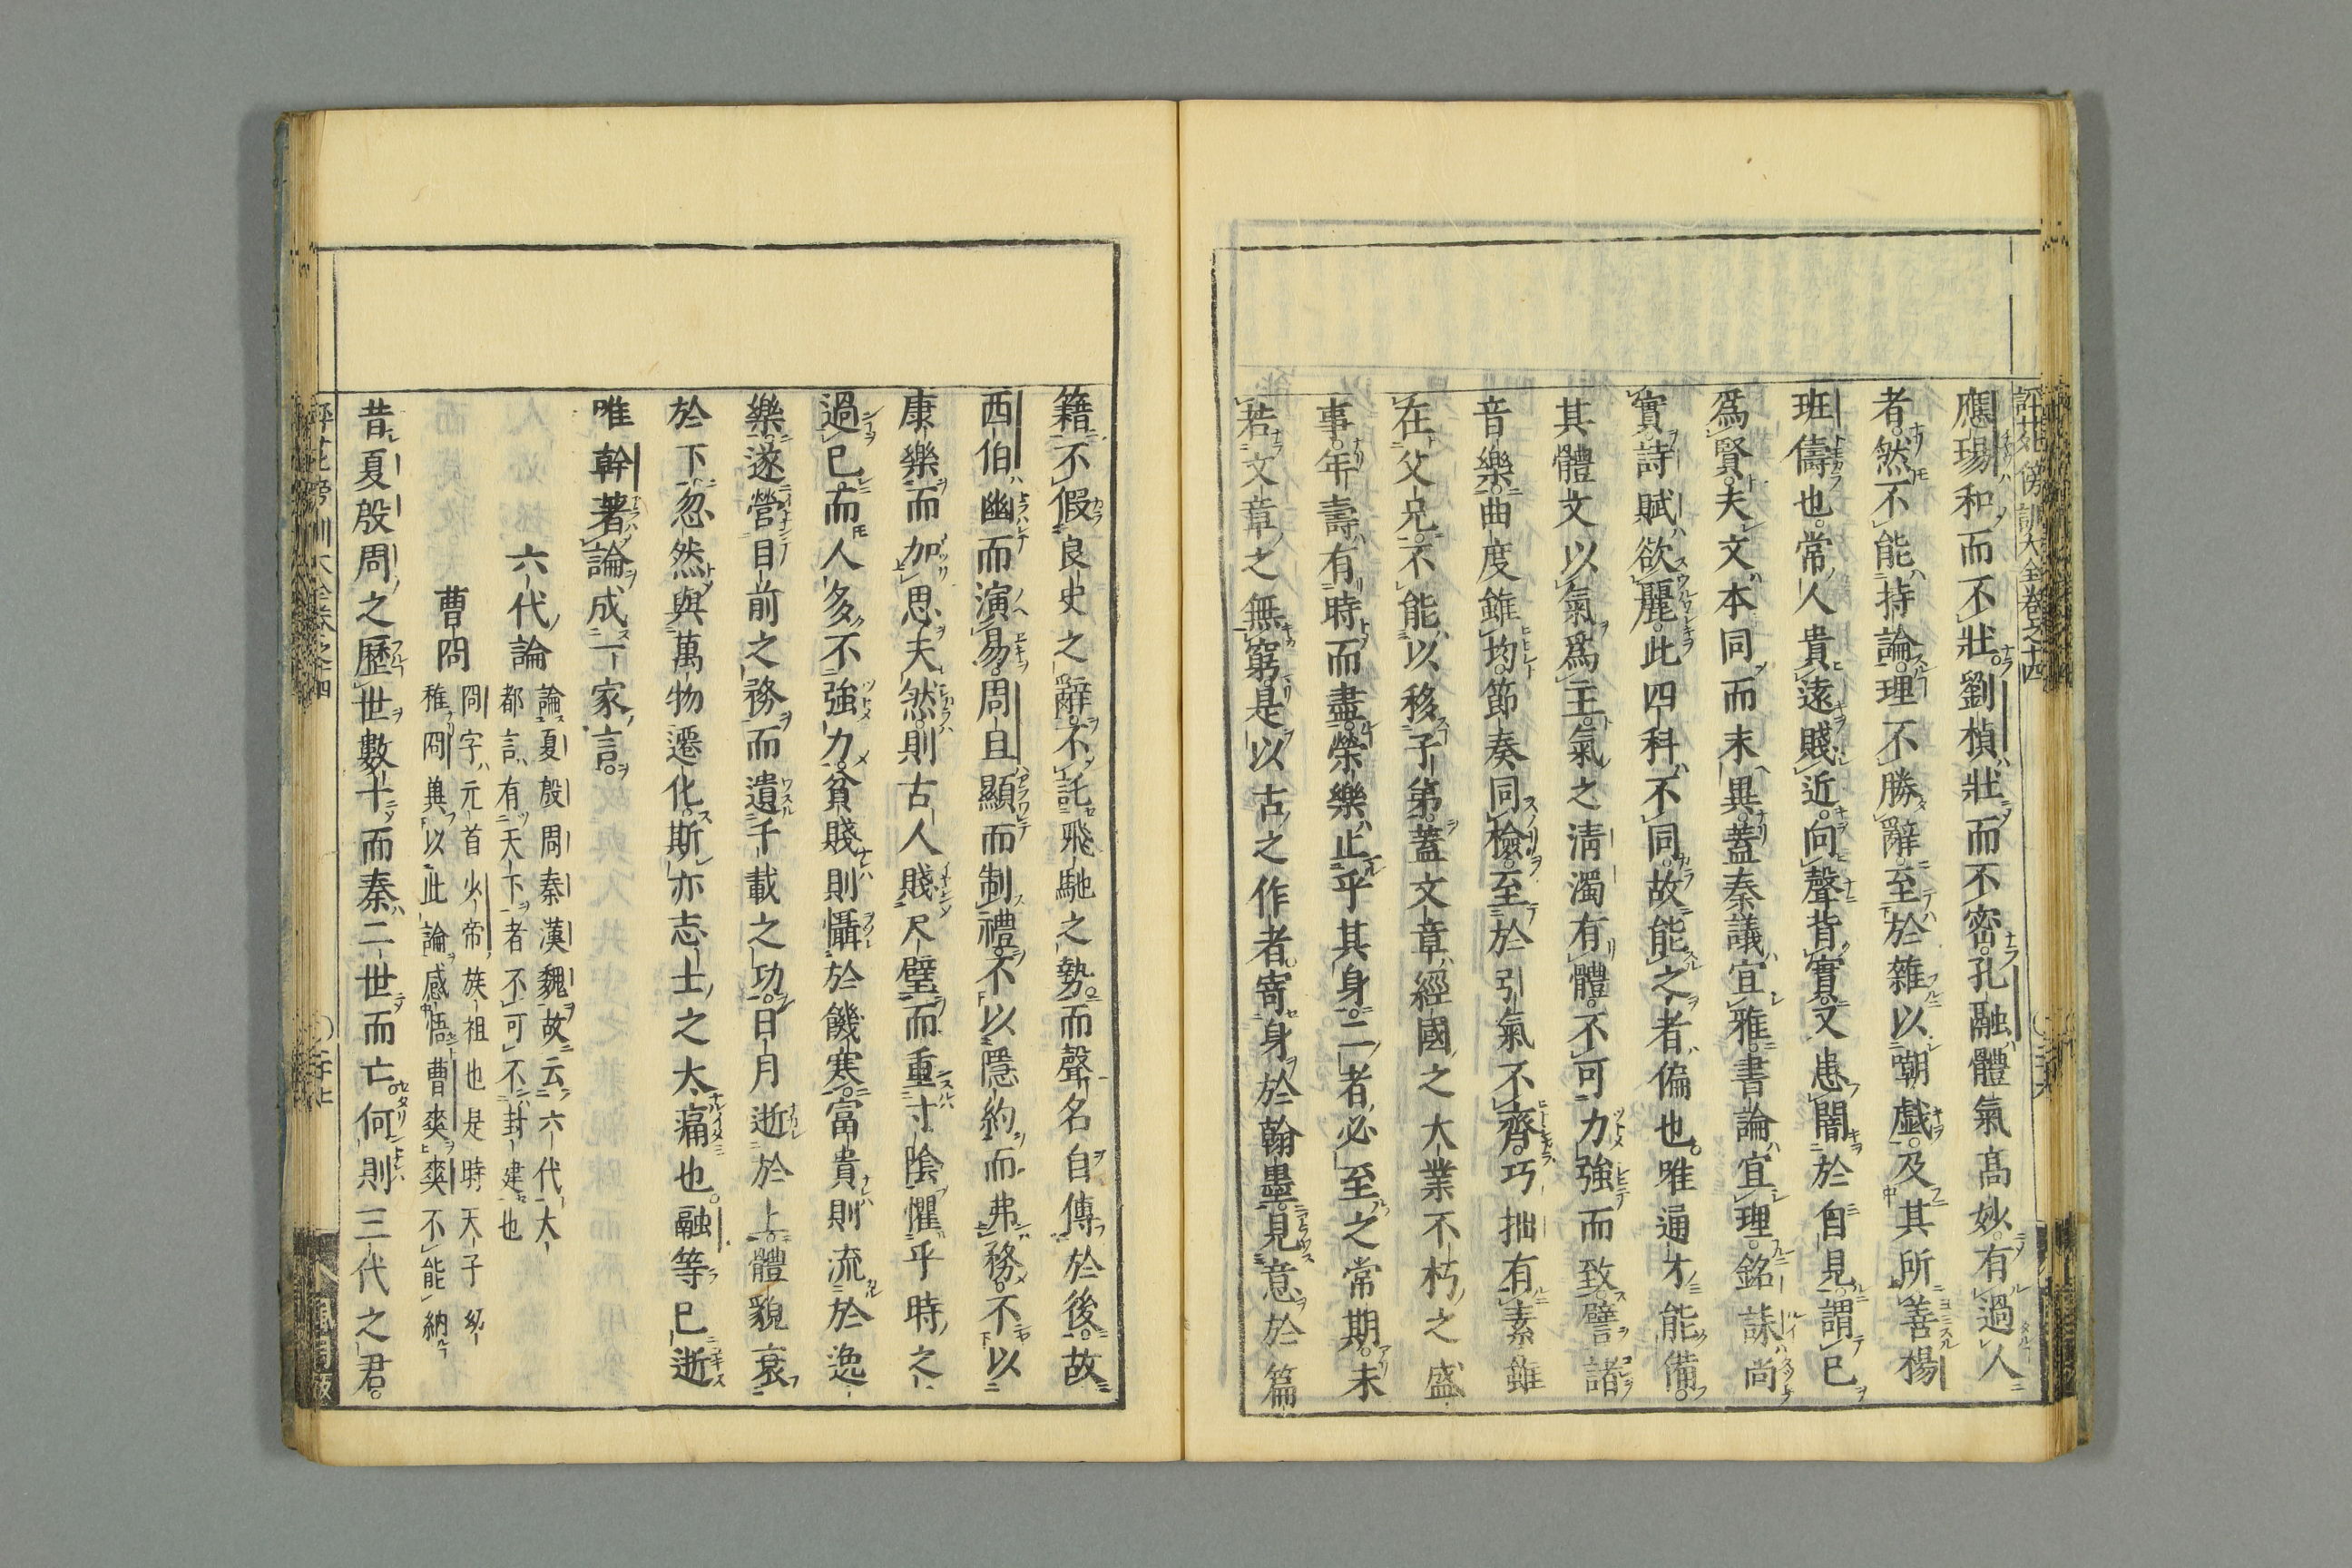 應瑒和而不壯。劉楨壯而不密。孔融體氣高妙。有過人
者。然不能持論。理不勝辭。至於雜以嘲戯。及其所善楊
班儔也。常人貴遠賤近。向聲背實。又患闇於自見。謂己
爲賢。夫文本同而末異。蓋秦議宜雅。書論宜理。銘誄尚
實。詩賦欲麗。此四科不同。故能之者偏也。唯通才能備。
其體文以氣爲主。氣之淸濁有體。不可力強而致。譬諸
音樂。曲度雖均。節奏同檢。至於引氣不齊。巧拙有素。雖
在父兄。不能以移子弟。蓋文章經國之大業不朽之盛
事。年壽有時而盡。榮樂止乎其身。二者必至之常期。未
若文章之無窮。是以古之作者。寄身於翰墨。見意於篇
籍。不假良史之辭。不託飛馳之勢。而聲名自傳於後。故
西伯幽而演易。周旦顯而制禮。不以隱約而弗務。不以
康樂而加思。夫然。則古人賤尺璧而重寸陰。懼乎時之
過已。而人多不強力。貧賤則懾於饑寒。富貴則流於逸
樂。遂營目前之務。而遺千載之功。日月逝於上。體貌衰
於下。忽然與萬物遷化。斯亦志士之大痛也。融等已逝
唯幹著論成一家言。
六代論
論夏殷周秦漢魏故云六代大
都言有天下者不可不封建也
曹冏
冏字元首少帝族祖也是時天子幼
稚冏興以此論感悟曹爽爽不能納
昔夏殷周之歷世數十。而秦二世而亡。何則三代之君。
評苑傍訓大全卷之十四